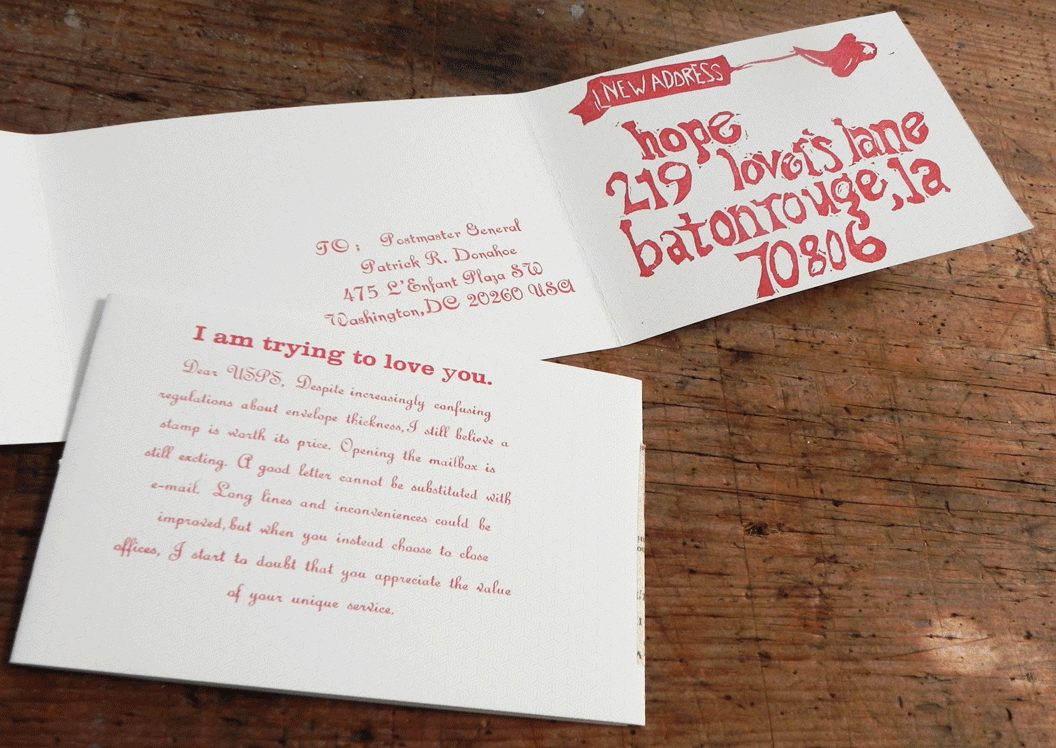 NEW ADDRESS
hope
219 lover's lane
batonrouge, la
70806
TO: Postmaster General
Patrick R. Donahoe
475 L'Enfant Plaza SW
Washington, DC 20260 USA
I am trying to love you.
Dear USPS, Despite increasingly confusing
regulations about envelope thickness, I still believe a
stamp is worth its price. Opening the mailbox is
still exciting. A good letter cannot be substituted with
e-mail. Long lines and inconveniences could be
improved, but when you instead choose to close
offices, I start to doubt that you appreciate the value
of your unique service.